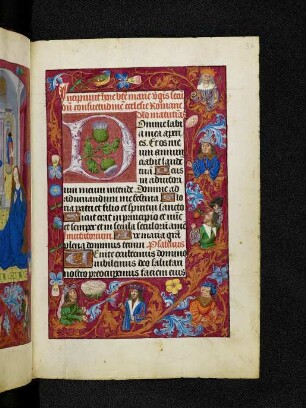 Incipiunt hore bte marie vgis secū
dū consuetudinē ecclesie Romane
Ad matutīas
Domine labia
mea aperi
es. Et os me
um annun
ciabit laudē
tuā Deus
in adiutori
um meum intende Domine ad
adiuuandum me festina Glo
ria patri et filio et spiritui sancto
Sicut erat in principio et nūc
et semper et in secula seculorū amē
Inuitatorium Aue maria grā
plena dominus tecum Psalmus
Uenite exultemus domino
iubilemus deo salutari
nostro preocupemus faciem eius